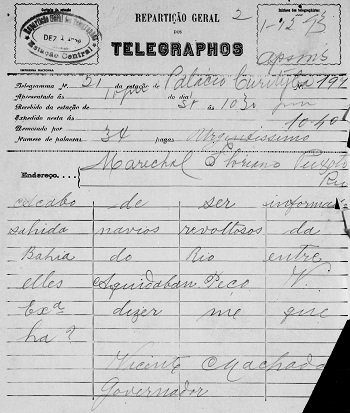 REPARTIÇÃO GERAL
2
DOS
TELEGRAPHOS
1-12-93
DEZ 1
Estação Central
Telegramma N. 51 da estação de Palacio Curityba 191
Apresentado ás do dia 30 ás 10 30 pm
Recebido da estação de
Expedido nesta ás 10.40
Transmittido por
Numero de palavras 34 pagas Urgentissimo
Marechal Floriano Peixoto
Endereço
Rio
Acabo de ser informado
sahida navios revoltosos da
Bahia do Rio entre
elles Aquidaban. Peço V.
Exª dizer me que
ha?
Vicente Machado
Governador